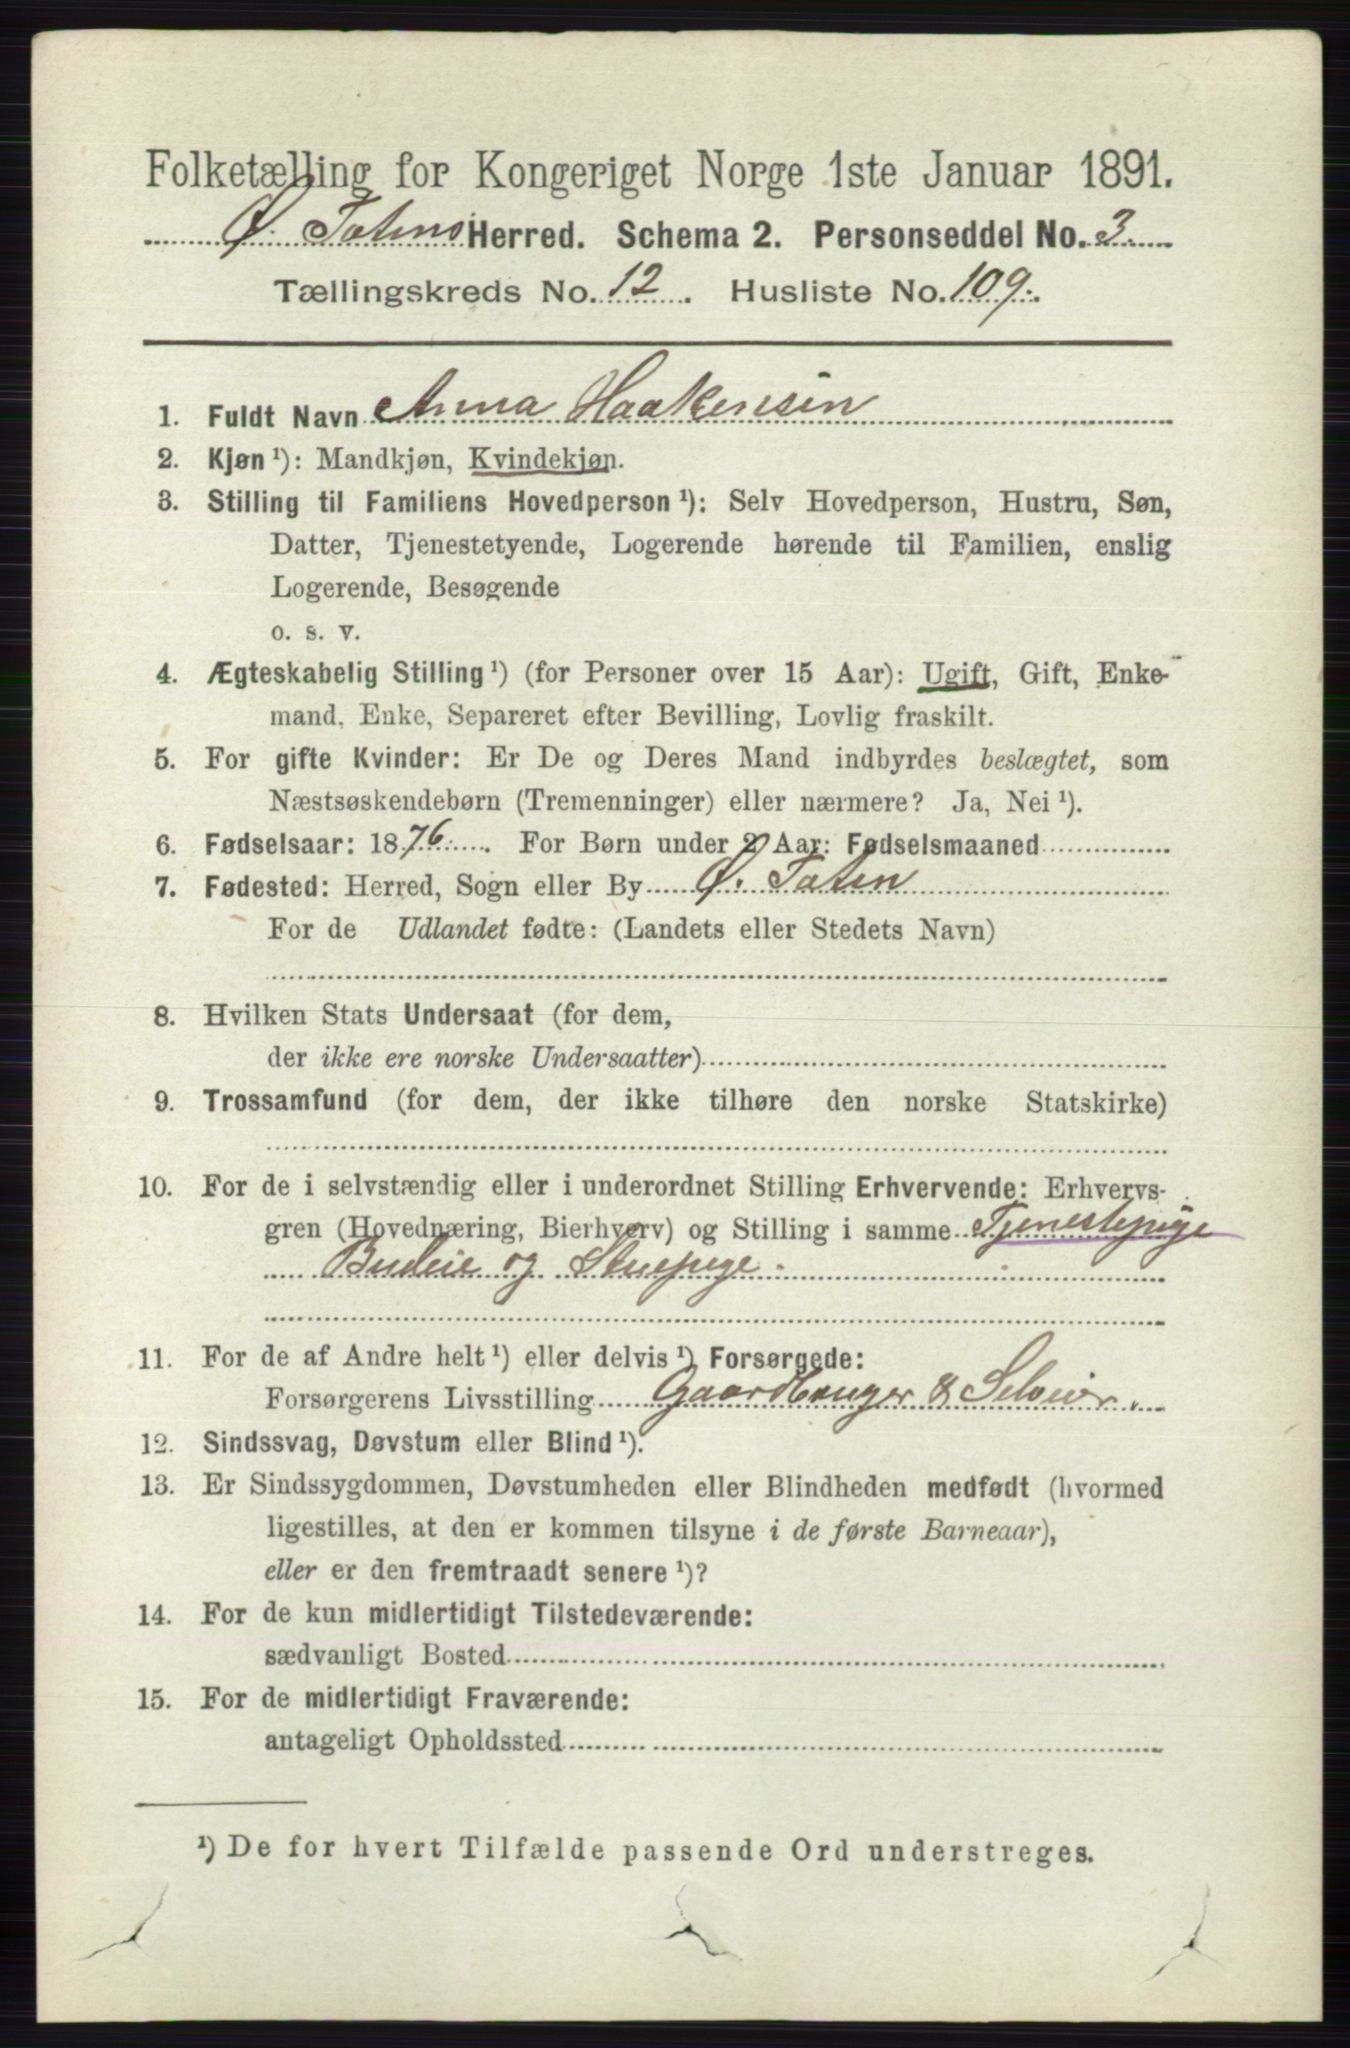 Folketælling for Kongeriget Norge 1ste Januar 1891.
Ø. Totens Herred. Schema 2. Personseddel No. 3.
Tællingskreds No. 12. Husliste No. 109.
1. Fuldt Navn Anna Haakensen
2. Kjøn ¹): Mandkjøn, Kvindekjøn.
3. Stilling til Familiens Hovedperson ¹): Selv Hovedperson, Hustru, Søn,
Datter, Tjenestetyende, Logerende hørende til Familien, enslig
Logerende, Besøgende
o. s. v.
4. Ægteskabelig Stilling ¹) (for Personer over 15 Aar): Ugift, Gift, Enke-
mand, Enke, Separeret efter Bevilling, Lovlig fraskilt.
5. For gifte Kvinder: Er De og Deres Mand indbyrdes beslægtet, som
Næstsøskendebørn (Tremenninger) eller nærmere? Ja, Nei ¹).
6. Fødselsaar: 1876. For Børn under 2 Aar: Fødselsmaaned
7. Fødested: Herred, Sogn eller By Ø. Toten
For de Udlandet fødte: (Landets eller Stedets Navn)
8. Hvilken Stats Undersaat (for dem,
der ikke ere norske Undersaatter)
9. Trossamfund (for dem, der ikke tilhøre den norske Statskirke)
10. For de i selvstændig eller i underordnet Stilling Erhvervende: Erhvervs-
gren (Hovednæring, Bierhverv) og Stilling i samme Tjenestepige
Budeie og Stuepige.
11. For de af Andre helt ¹) eller delvis ¹) Forsørgede:
Forsørgerens Livsstilling Gaardbruger & Selveier.
12. Sindssvag, Døvstum eller Blind ¹).
13. Er Sindssygdommen, Døvstumheden eller Blindheden medfødt (hvormed
ligestilles, at den er kommen tilsyne i de første Barneaar),
eller er den fremtraadt senere ¹)?
14. For de kun midlertidigt Tilstedeværende:
sædvanligt Bosted
15. For de midlertidigt Fraværende:
antageligt Opholdssted
¹) De for hvert Tilfælde passende Ord understreges.